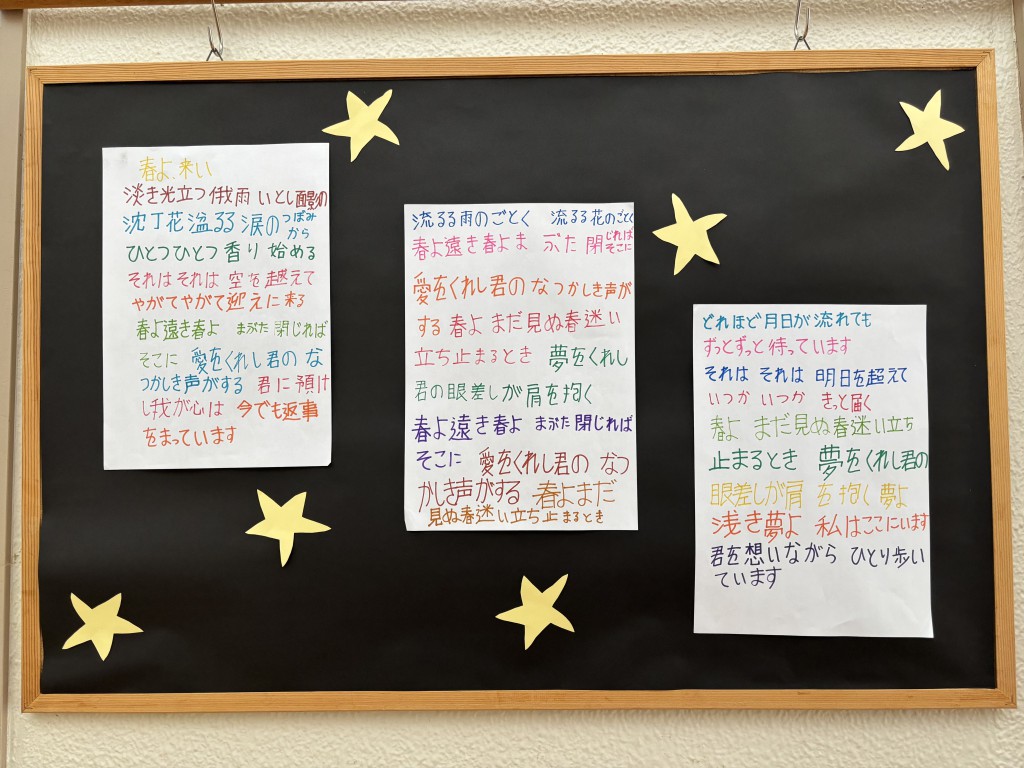 春よ、来い
淡き光立つ俄雨 いとし面影の
沈丁花 溢るる 涙の つぼみ
から
ひとつひとつ 香り 始める
それは それは 空を 越えて
やがてやがて 迎えに 来る
春よ 遠き春よ まぶた 閉じれば
そこに 愛をくれし 君の な
つかしき声がする 君に 預け
し 我が心は 今でも返事
をまっています
流るる 雨のごとく 流るる 花のごとく
春よ 遠き 春よ ま ぶた 閉じれば
そこに
愛をくれし 君の なつかしき声が
する 春よ まだ見ぬ春 迷い
立ち止まるとき 夢をくれし
君の 眼差しが 肩を抱く
春よ 遠き 春よ まぶた 閉じれば
そこに 愛をくれし君の なつ
かしき声がする 春よまだ
見ぬ春 迷い立ち止まるとき
どれほど 月日が 流れても
ずっとずっと 待っています
それは それは 明日を超えて
いつか いつか きっと届く
春よ まだ見ぬ春 迷い立ち
止まるとき 夢をくれし君の
眼差しが肩 を抱く 夢よ
浅き夢よ 私はここにいます
君を想いながら ひとり歩い
ています